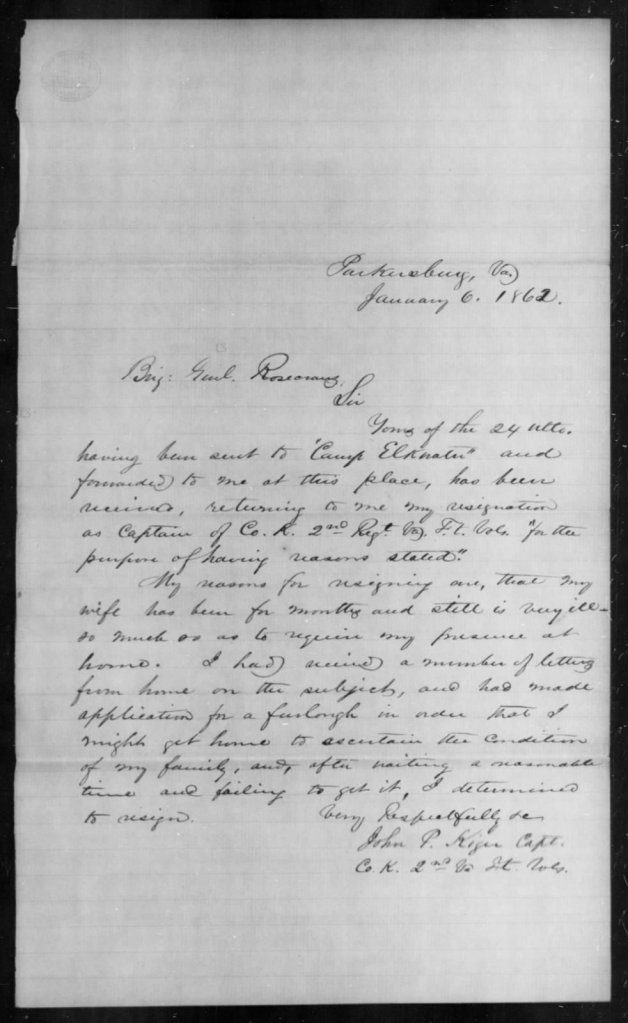 Parkersburg, Va
January 6. 1862.
Brig: Genl. Rosecrans,
Sir
Yours of the 24 ulto.
having been sent to "Camp Elkwater" and
forwarded to me at this place, has been
received, returning to me my resignation
as Captain of Co. K. 2nd Regt. Va. Vols. "for the
purpose of having reasons stated".
My reasons for resigning are, that my
wife has been for months and still is very ill—
so much so as to require my presence at
home. I had received a number of letters
from home on the subject, and had made
application for a furlough in order that I
might get home to ascertain the condition
of my family, and, after waiting a reasonable
time and failing to get it, I determined
to resign.
Very Respectfully &c
John P. Kiger Capt.
Co. K. 2nd Va Vols.